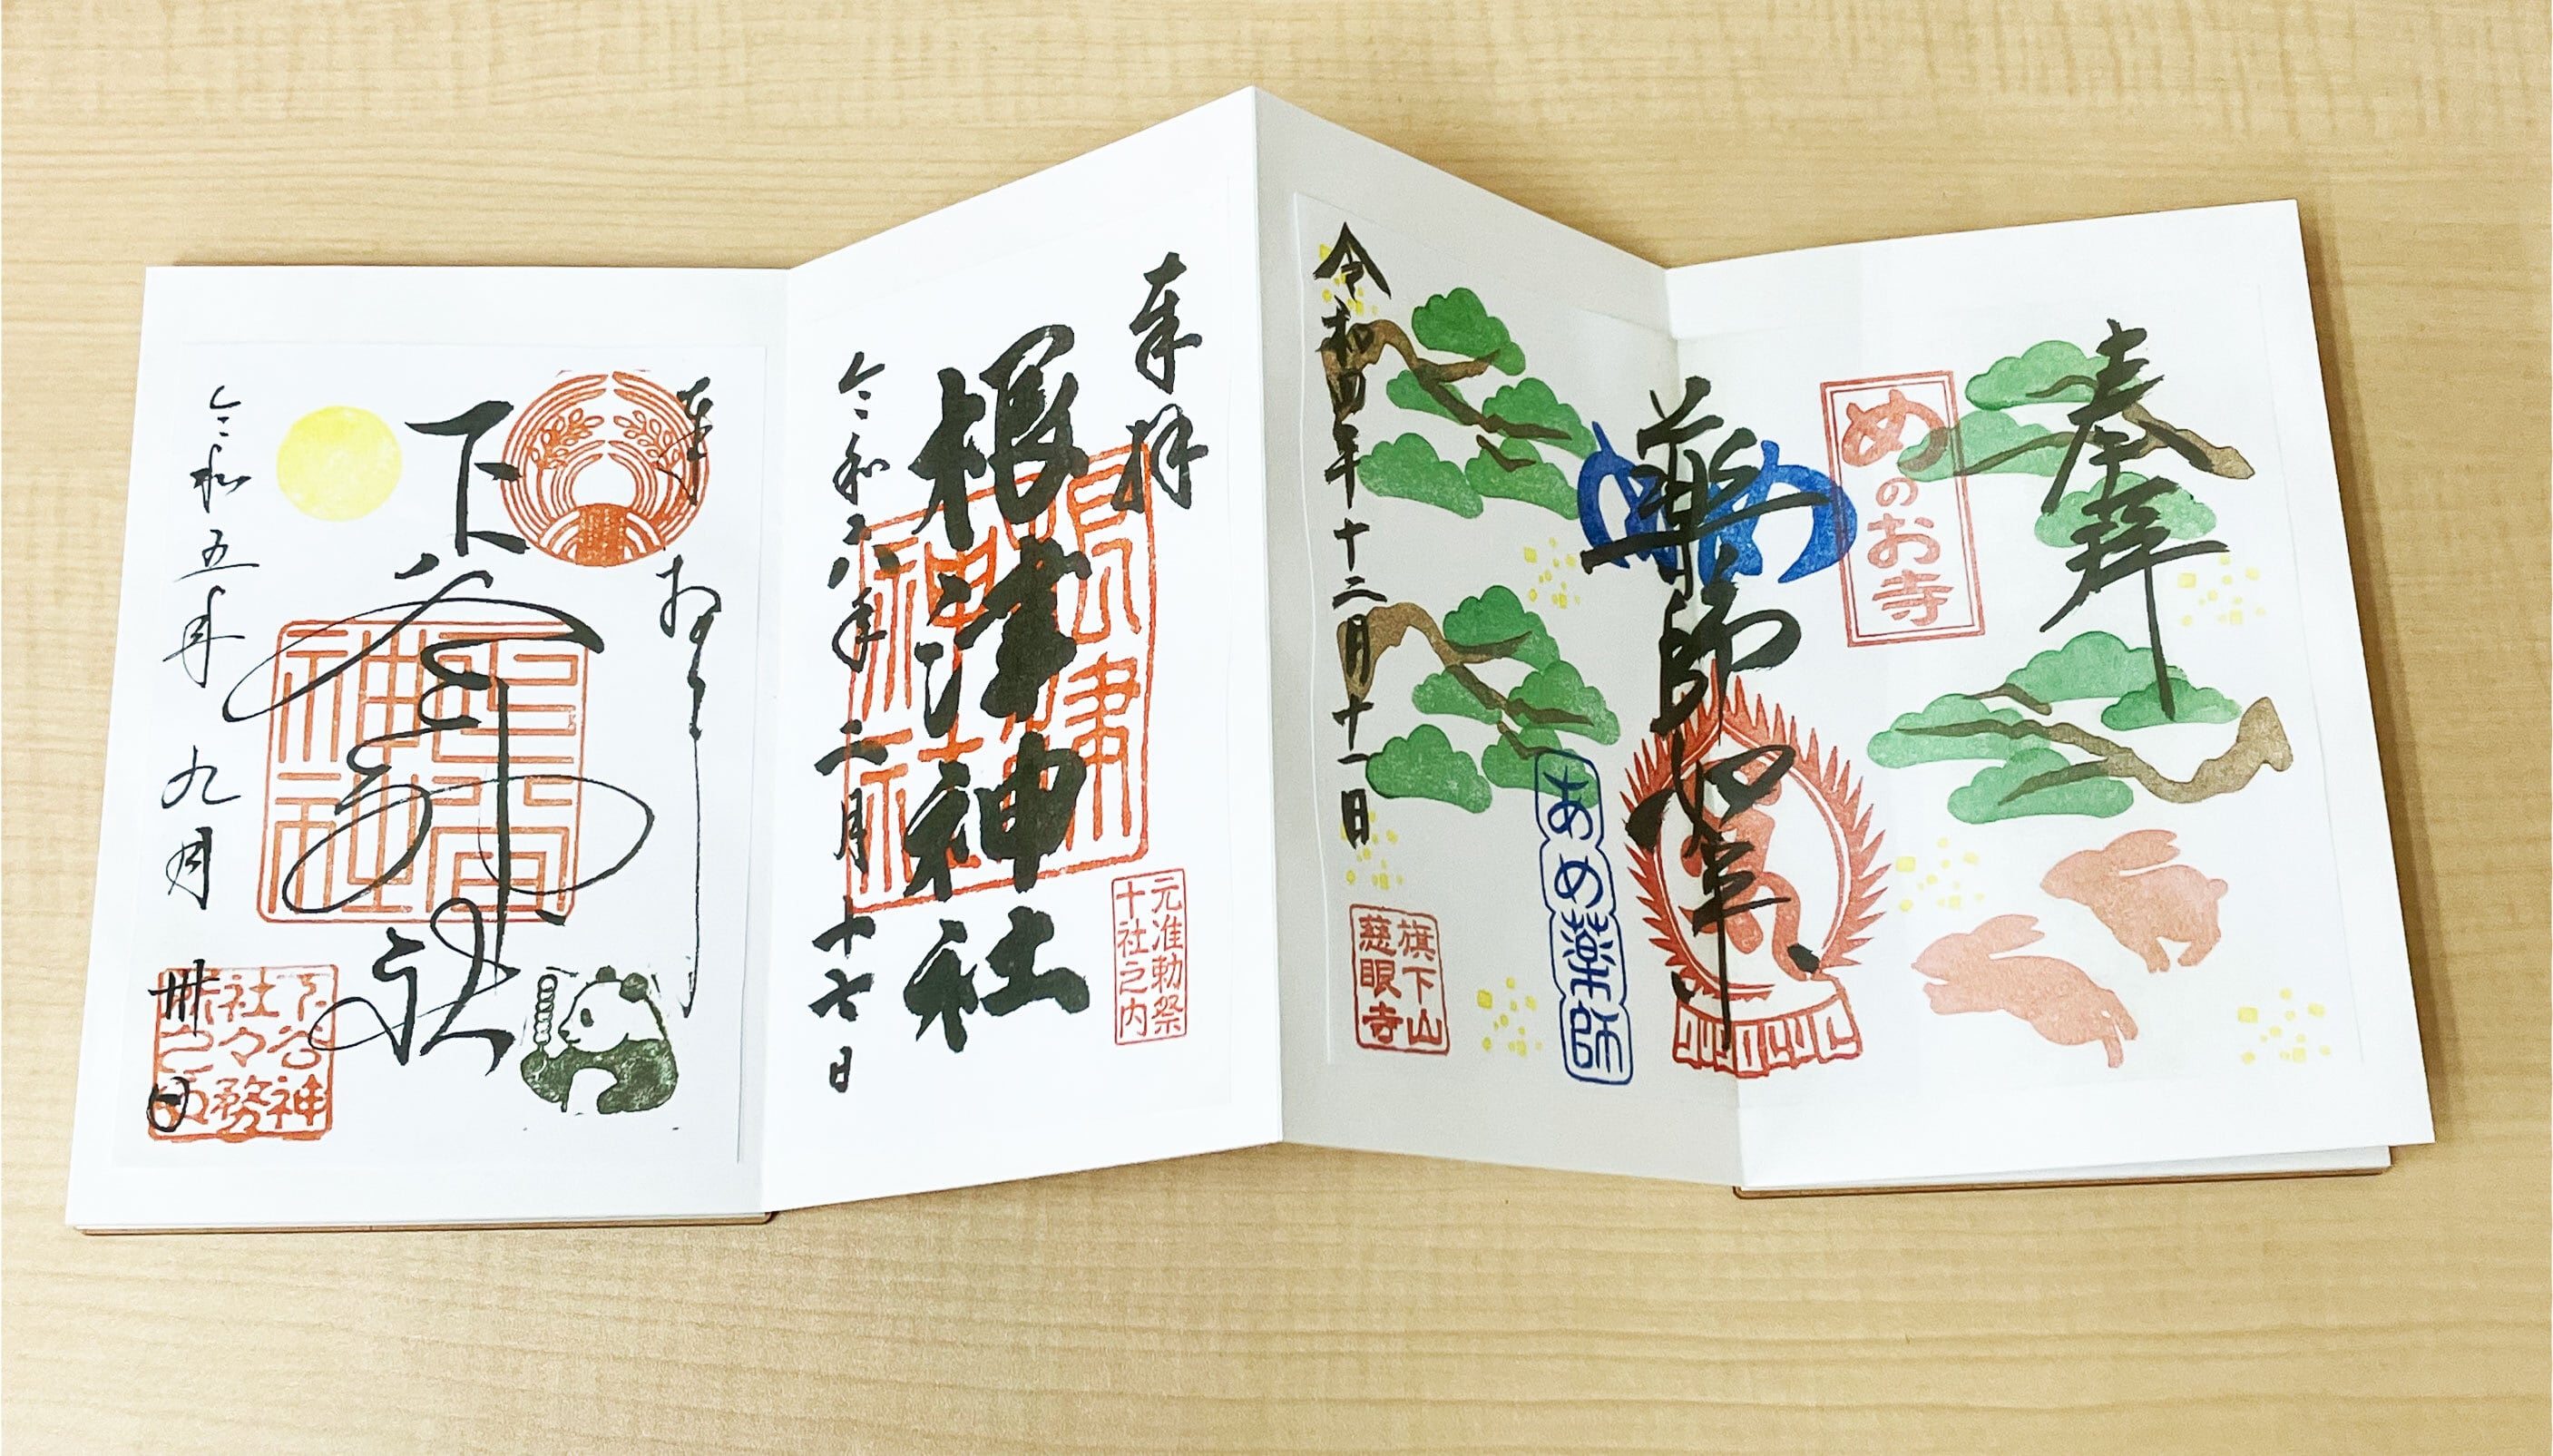 奉拝
めのお寺
薬師如来
め
あめ薬師
令和四年十二月十一日
旗下山
慈眼寺
奉拝
根津神社
根津
神社
元准勅祭
十社之内
令和六年二月十七日
奉拝
下谷神社
下谷神
社々務
所之印
令和五年九月卅日